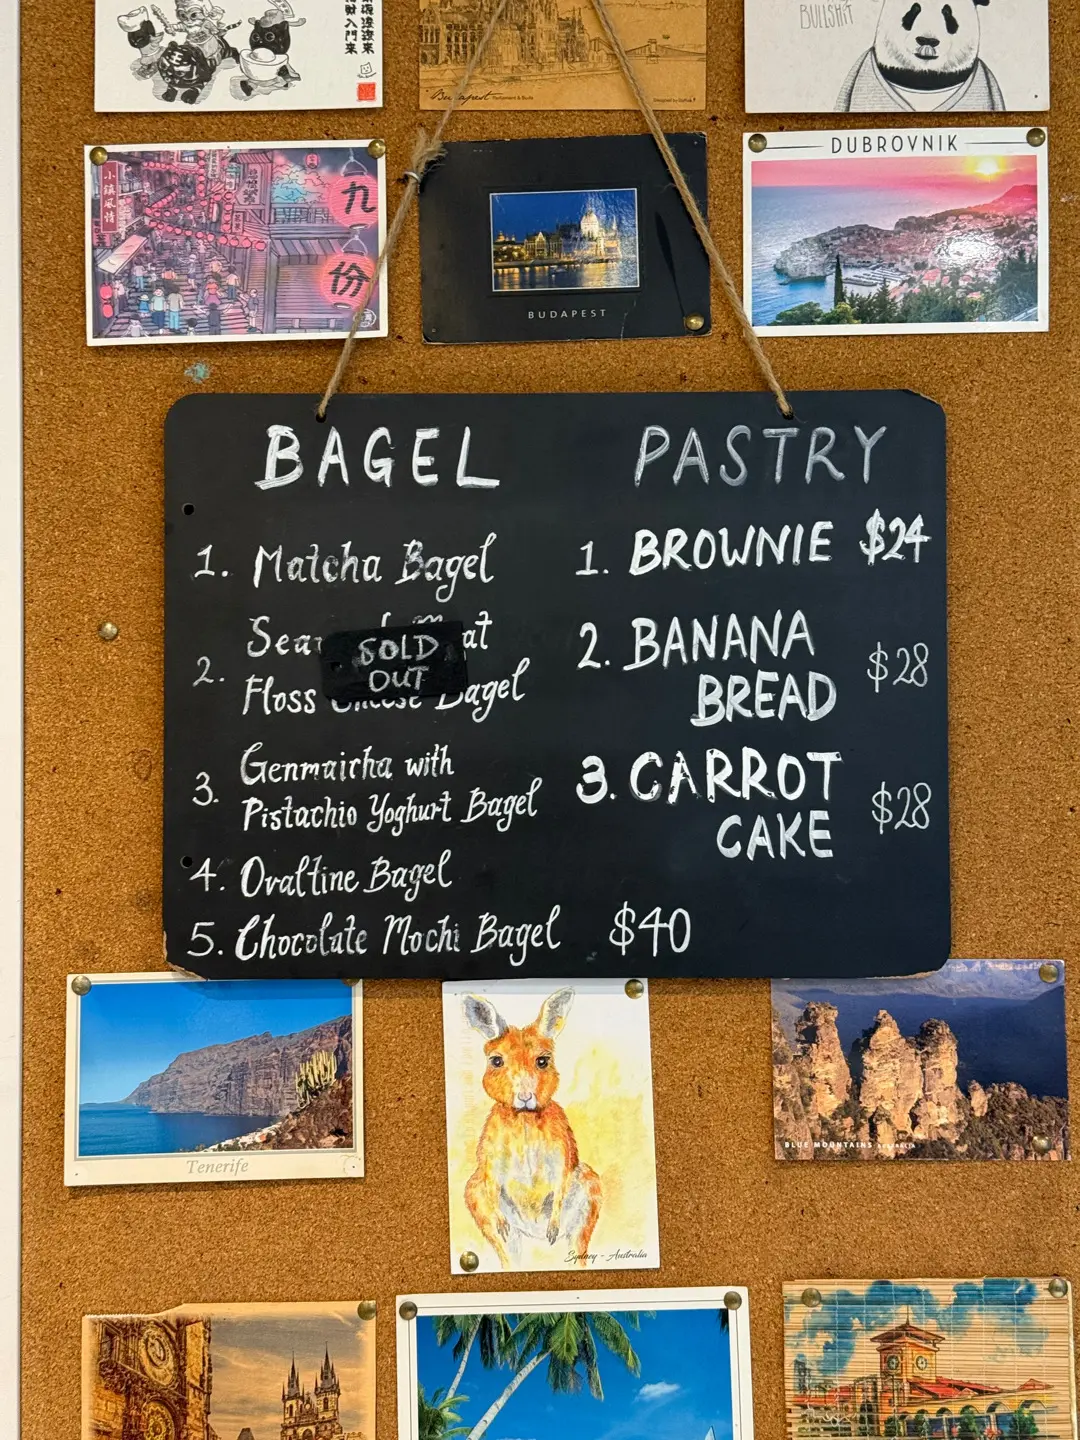 BULLSHIT
Budapest
DUBROVNIK
小鎮風情
九
份
BUDAPEST
BAGEL
1. Matcha Bagel
2. Floss Bagel
SOLD
OUT
3. Genmaicha with
Pistachio Yoghurt Bagel
4. Ovaltine Bagel
5. Chocolate Mochi Bagel $40
PASTRY
1. BROWNIE $24
2. BANANA
BREAD $28
3. CARROT
CAKE $28
Tenerife
BLUE MOUNTAINS AUSTRALIA
Sydney - Australia